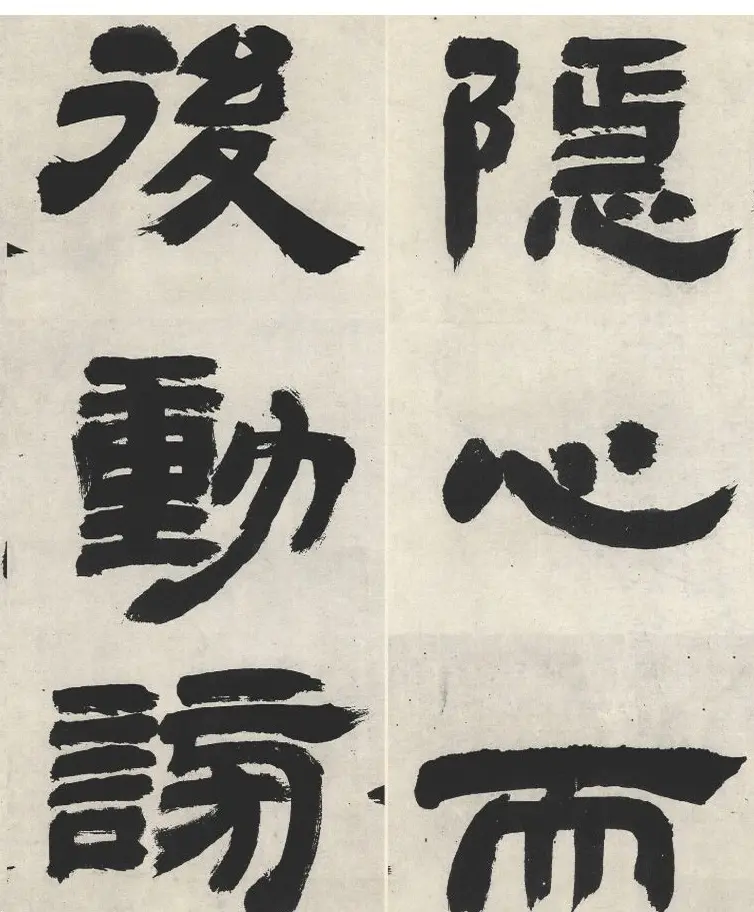 隱心而
後動謗